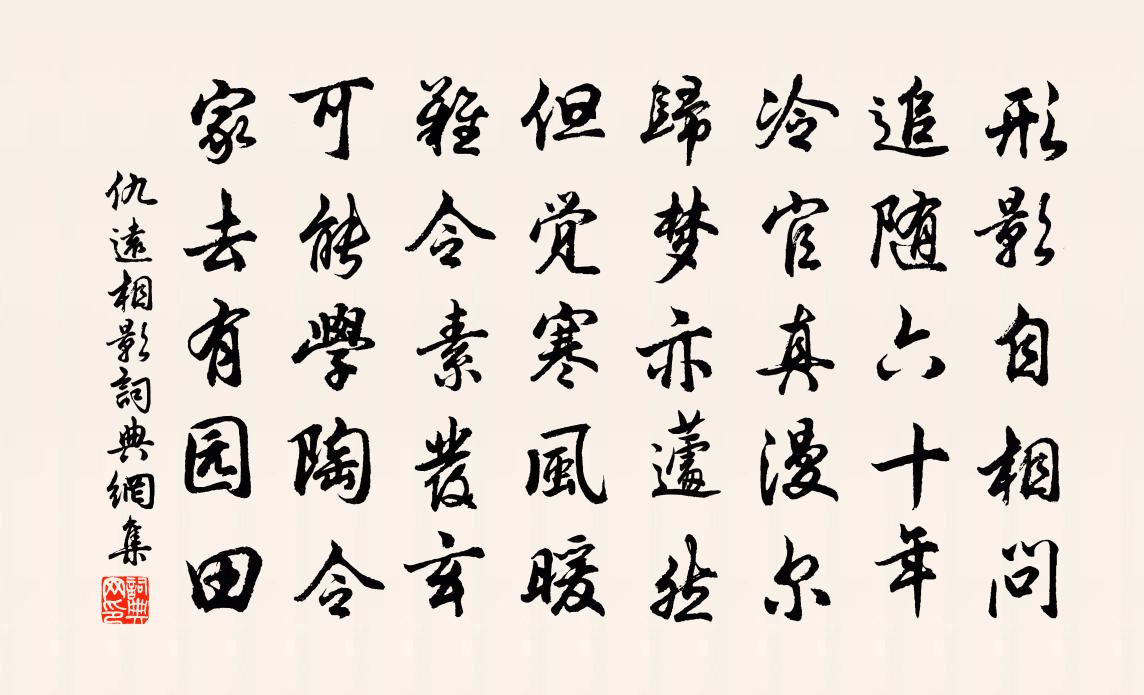 形影自相问
追随六十年
冷官真漫尔
歸梦亦蘧然
但觉寒風暖
難令素發玄
可能學陶令
家去有园田
仇遠相影詞典網集
詞典网印